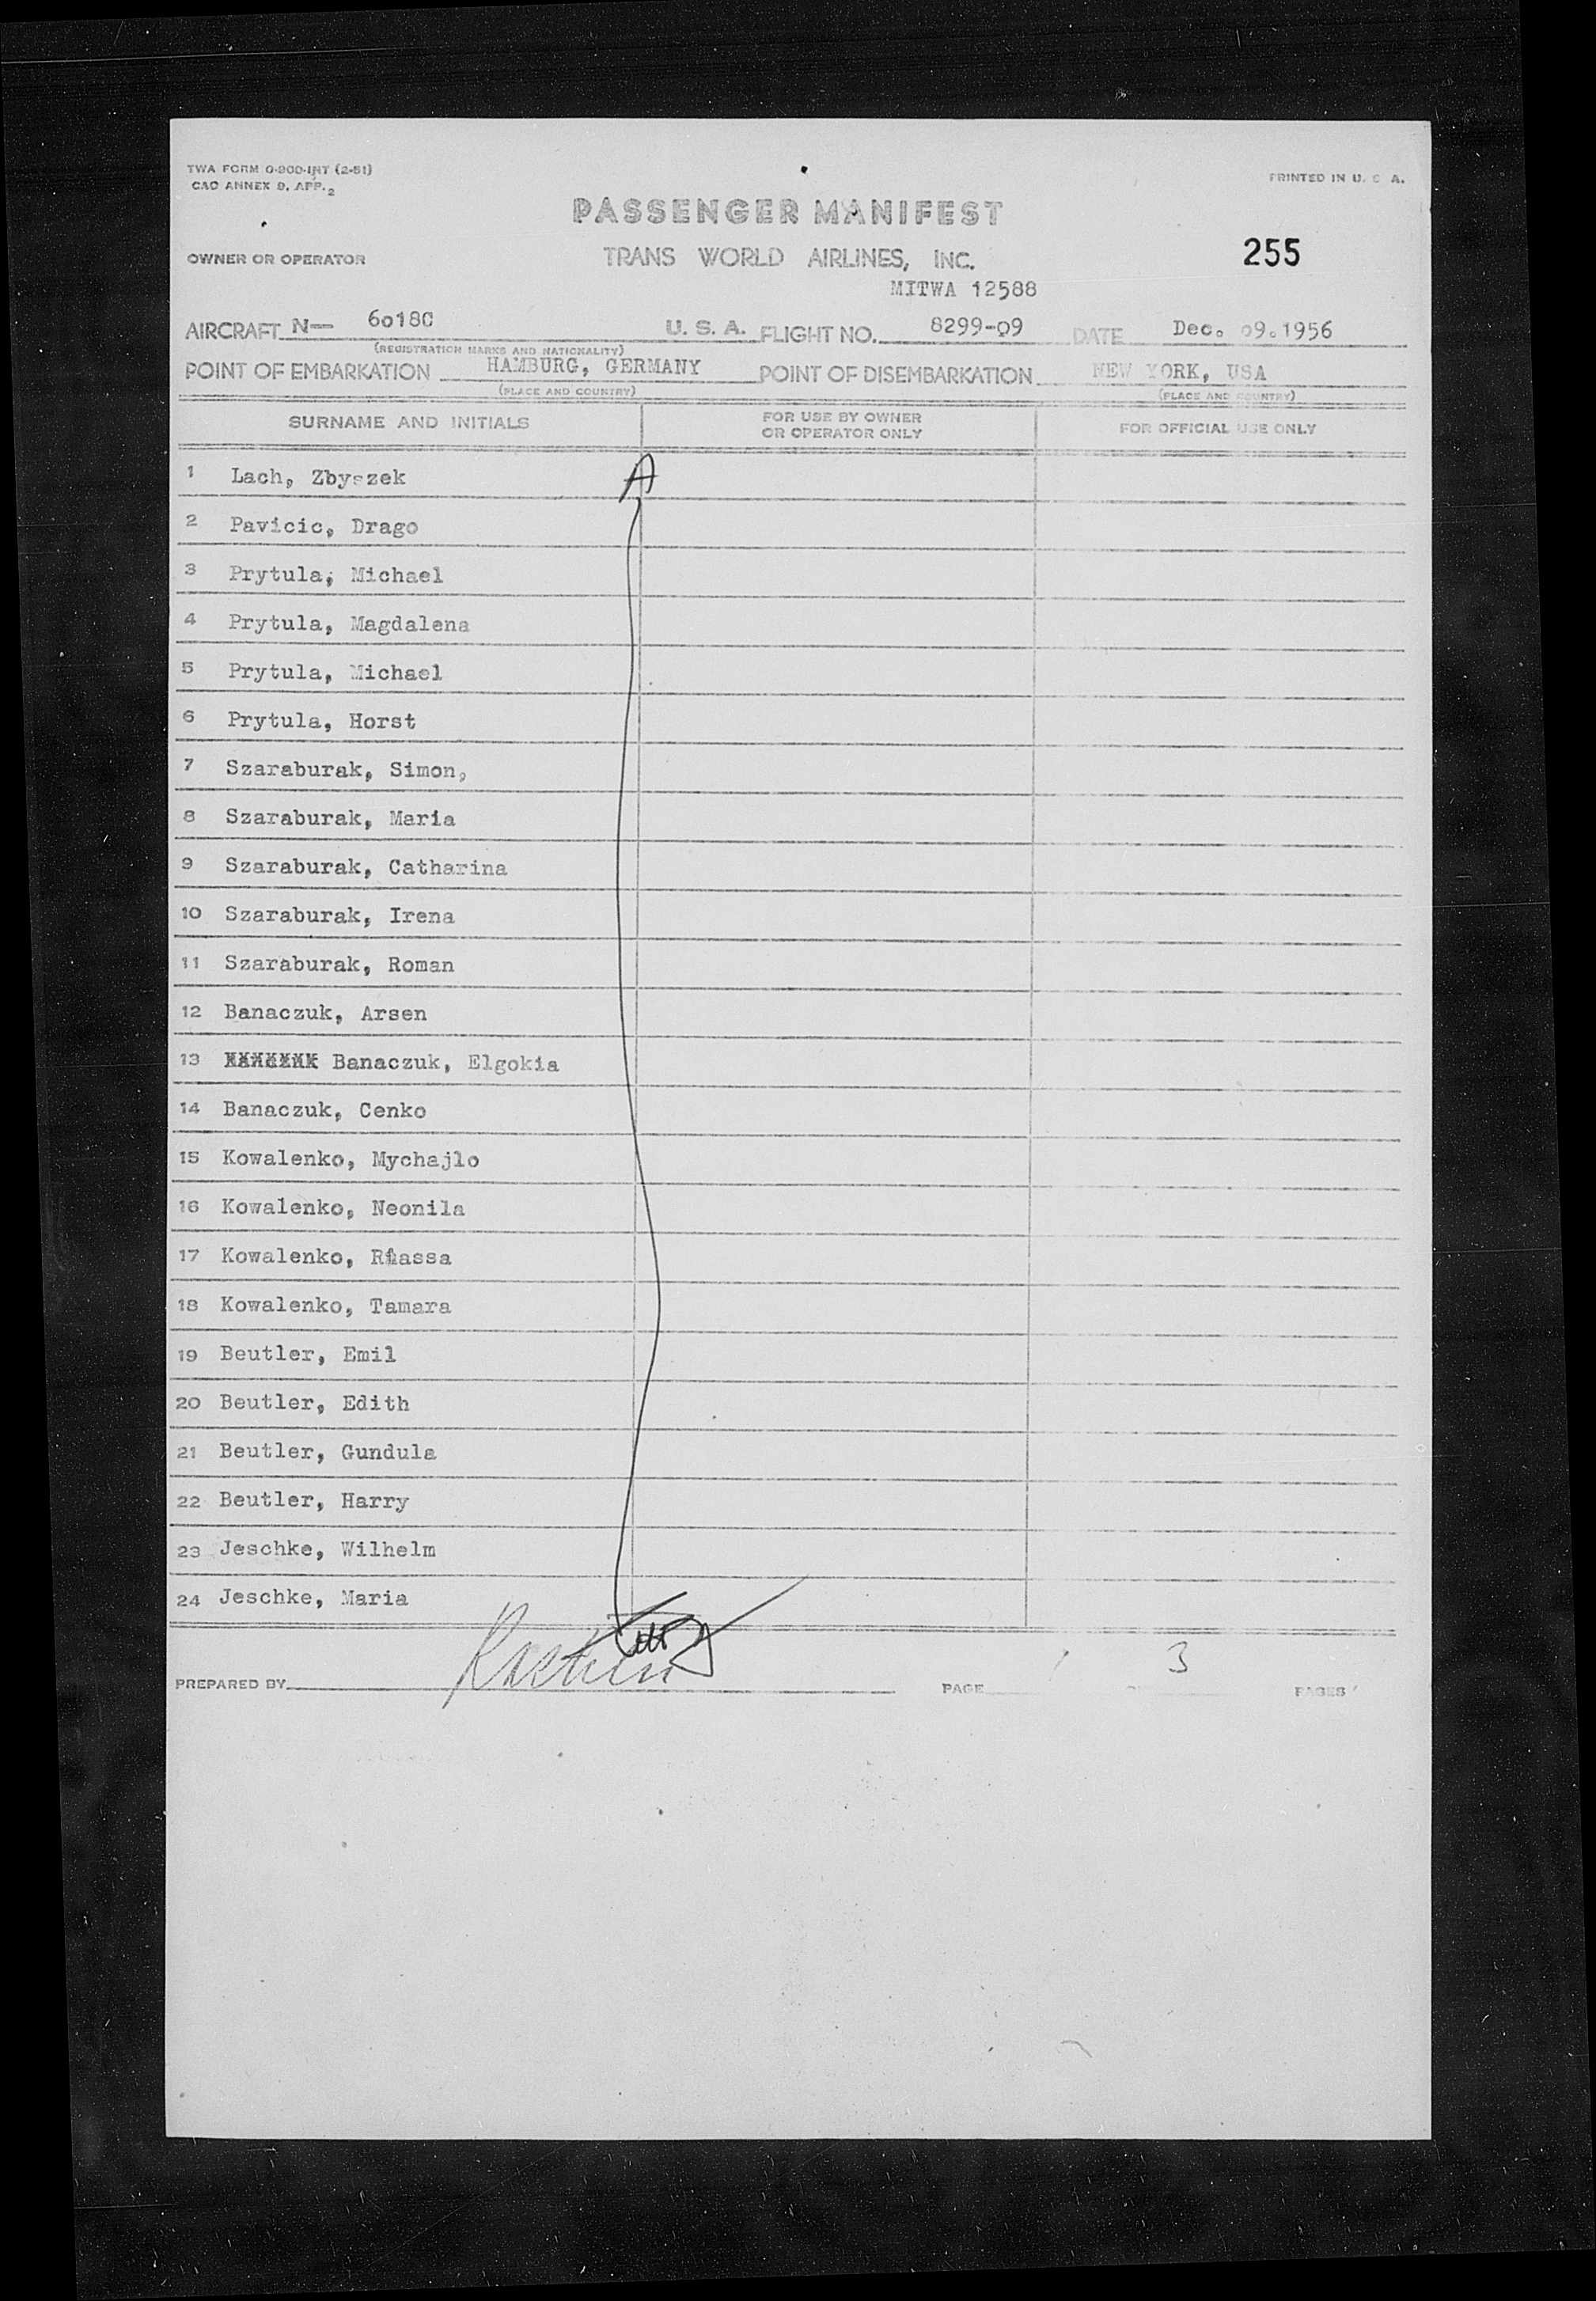 TWA FORM O-900-INT (2-51)
CAO ANNEX 9, APP. 2
PRINTED IN U. S. A.
PASSENGER MANIFEST
OWNER OR OPERATOR TRANS WORLD AIRLINES, INC. 255
MITWA 12588
AIRCRAFT N— 6o180 U. S. A. FLIGHT NO. 8299-09 DATE Dec. 09.1956
(REGISTRATION MARKS AND NATIONALITY)
POINT OF EMBARKATION HAMBURG, GERMANY POINT OF DISEMBARKATION NEW YORK, USA
(PLACE AND COUNTRY) (PLACE AND COUNTRY)
SURNAME AND INITIALS FOR USE BY OWNER OR OPERATOR ONLY FOR OFFICIAL USE ONLY
1 Lach, Zbyszek A
2 Pavicic, Drago
3 Prytula, Michael
4 Prytula, Magdalena
5 Prytula, Michael
6 Prytula, Horst
7 Szaraburak, Simon,
8 Szaraburak, Maria
9 Szaraburak, Catharina
10 Szaraburak, Irena
11 Szaraburak, Roman
12 Banaczuk, Arsen
13 Banaczuk, Elgokia
14 Banaczuk, Cenko
15 Kowalenko, Mychajlo
16 Kowalenko, Neonila
17 Kowalenko,
18 Kowalenko, Tamara
19 Beutler, Emil
20 Beutler, Edith
21 Beutler, Gundula
22 Beutler, Harry
23 Jeschke, Wilhelm
24 Jeschke, Maria
PREPARED BY PAGE 1 3 PAGES